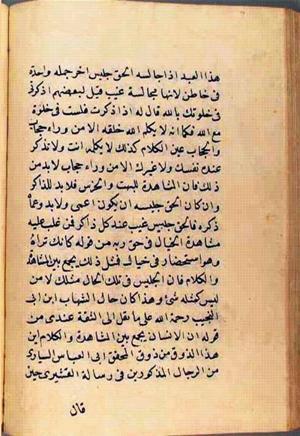 هذا العبد اذا جالسه الحق جليس اخر جملة واحدة
في خاطره لانها مجالسة غيب قيل لبعضهم اذكرني
في خلوتك بالله قال له اذا ذكرتك فلست في خلوة
مع الله فكما انه لا يكلم الله خلقه الا من وراء حجاب
والحجاب عين الكلام كذلك لا يكلمه انت ولا تذكر
عنده نفسك ولا غيرك الا من وراء حجاب لا بد من
ذلك فان المشاهدة للبهت والخرس فلا بد للذاكر
وان كان الحق جليسه ان يكون اعمى ولا بد وعماه
ذكره فالحق جليس غيب عند كل ذاكر فمن غلب عليه
مشاهدة الخيال في حق ربه من قوله كانك تراه
وهو استحضار في خيال فمثل ذلك يجمع بين المشاهدة
والكلام فان الجليس في تلك الحال مثلك لا من
ليس كمثله شئ وهذا كان حال الشهاب ابن ابي
النجيب رحمة الله على ما نقل الي الثقة عندي من
قوله ان الانسان يجمع بين المشاهدة والكلام اين
هذا الذوق من ذوق المحقق ابي العباس السياري
من الرجال المذكورين في رسالة القشيري حين
قال